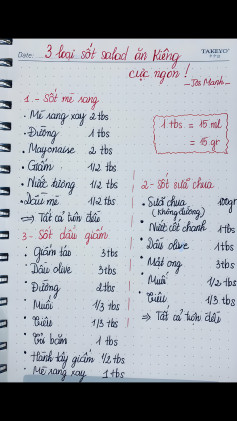 Date:
TAKEYO®
3 loại sốt salad ăn kiêng
cực ngon!
1.- Sốt mè rang
• Mè rang xay 2 tbs
• Đường 1 tbs
• Mayonaise 2 tbs
• Giấm 1/2 tbs
• Nước tương 1/2 tbs
• Dầu mè 1/2 tbs
⇒ Tất cả trộn đều
1 tbs = 15 ml
= 15 gr
2- Sốt sữa chua
• Sữa chua 100gr
(không đường)
• Nước cốt chanh 1 tbs
• Dầu olive 1 tbs
• Mật ong 3 tbs
• Muối 1/2 tbs
• Tiêu 1/3 tbs
⇒ Tất cả trộn đều
3- Sốt dầu giấm
• Giấm táo 3 tbs
• Dầu olive 3 tbs
• Đường 2 tbs
• Muối 1/3 tbs
• Tiêu 1/3 tbs
• Tỏi băm 1 tbs
• Hành tây giấm 1/2 tbs
• Mè rang xay 1 tbs